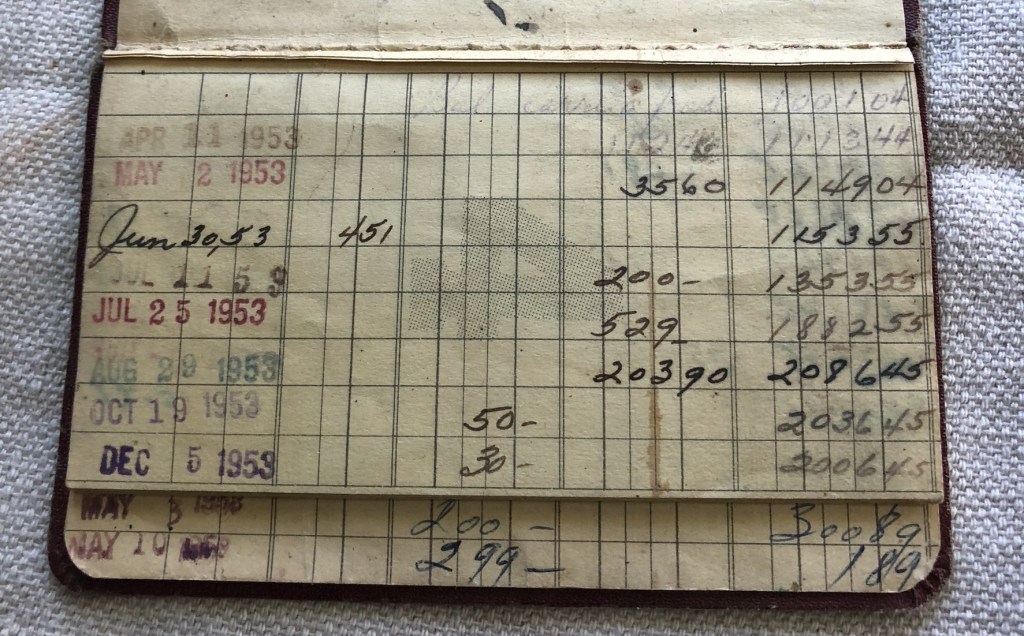 Bal 1001 04
APR 11 1953 112 40 1113 44
MAY 2 1953 35 60 1149 04
Jun 30, 53 4 51 1153 55
JUL 11 5 200 - 1353 55
JUL 25 1953 529 - 1882 55
AUG 29 1953 203 90 2086 45
OCT 19 1953 50 - 2036 45
DEC 5 1953 30 - 2006 45
MAY 3 200 - 300 89
MAY 10 299 - 1 89